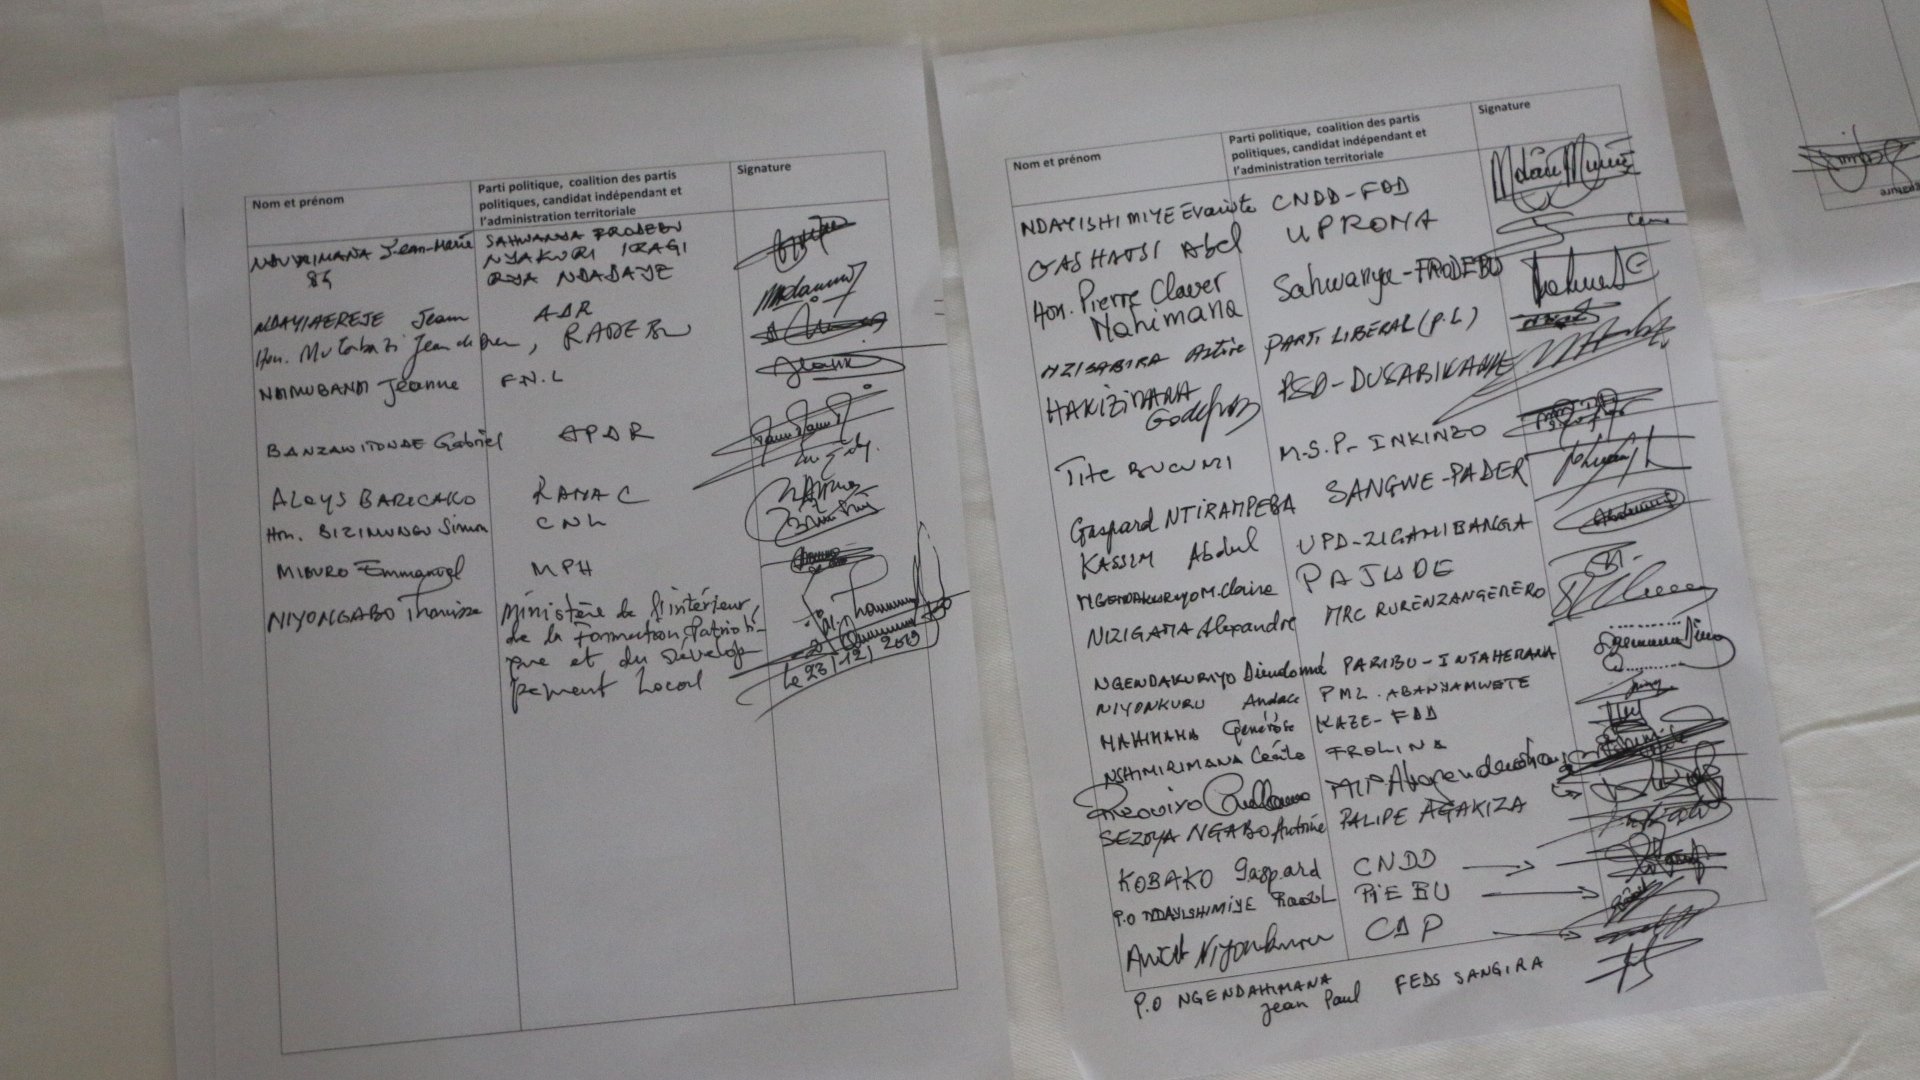 Nom et prénom
Parti politique, coalition des partis
politiques, candidat indépendant et
l'administration territoriale
Signature
Jean-Marie
SAHWANYA FRODEBU
NYAKURI IRAGI
RYA NDADAYE
NDAYIHEREJE Jean
ADR
Hon. Mutabazi Jean de Dieu, RADEBU
Jeanne F.N.L
BANZAWITONDE Gabriel APDR
Aloys BARICAKO RANAC
Hon. BIZIMUNGU Simon CNL
MIBURO Emmanuel MPH
NIYONGABO Ministère de l'intérieur,
de la Formation Patrioti-
que et du Dévelop-
pement Local
Le 23/12/2019
Nom et prénom
Parti politique, coalition des partis
politiques, candidat indépendant et
l'administration territoriale
Signature
NDAYISHIMIYE Evariste CNDD-FDD
GASHATSI Abel UPRONA
Hon. Pierre Claver
Nahimana
Sahwanya-FRODEBU
NZIGABIRA PARTI LIBERAL (P.L)
HAKIZIMANA
PSD-DUSABIKANYE
Tite BUCUMI M.S.P- INKINZO
Gaspard NTIRAMPEBA SANGWE-PADER
KASSIM Abdul UPD-ZIGAMIBANGA
NGENDAKURIYO M.Claire PAJUDE
NIZIGAMA Alexandre MRC RURENZANGEMERO
NGENDAKURIYO Dieudonné PARIBU-INTAHEMANA
NIYONKURU Audace PML.ABANYAMWETE
NAHIMANA Générose KAZE-FDD
NSHIMIRIMANA Cécile FROLINA
SEZOYA NGABO Antoine PALIPE AGAKIZA
KOBAKO Gaspard CNDD
P.O NDAYISHIMIYE PIEBU
Anicet Niyonkuru CDP
P.O NGENDAHIMANA
Jean Paul
FEDS SANGIRA